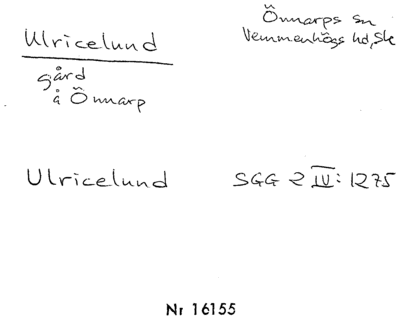 Ulricelund
gård
å Önnarp
Önnarps sn
Vemmenhögs hd, Sk
Ulricelund
SGG 2 IV: 1275
Nr 16155